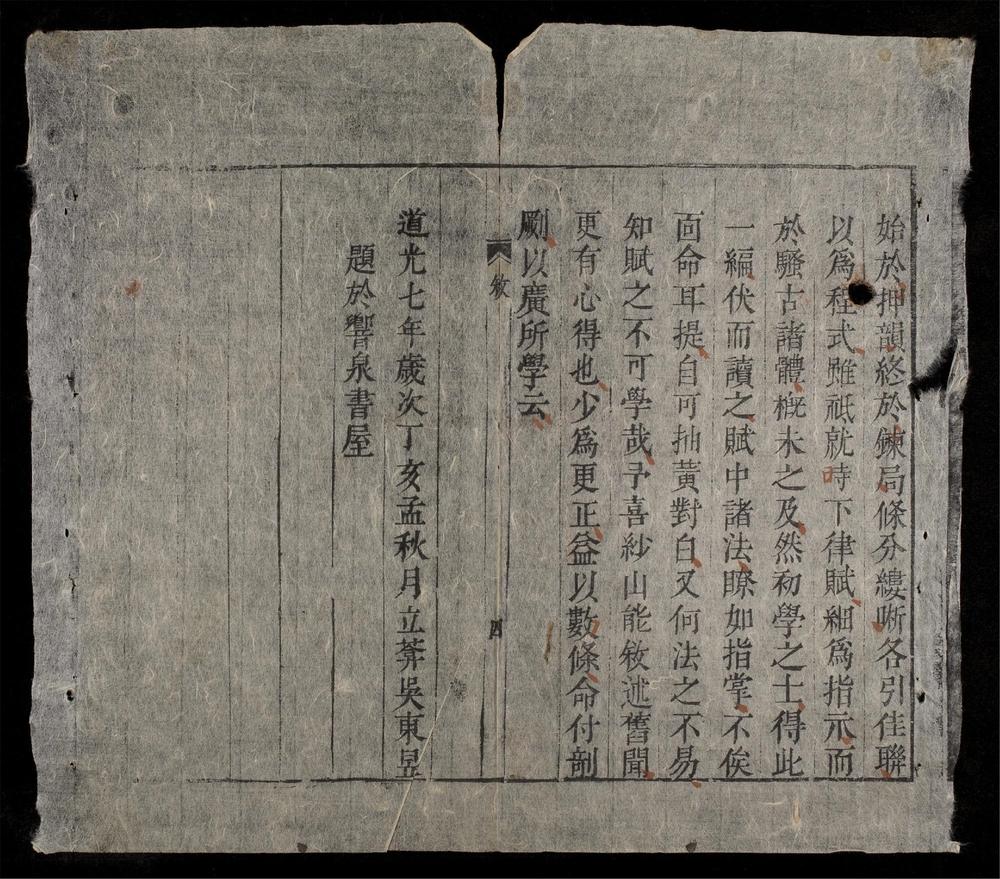 始於押韻終於鍊局條分縷晰各引佳聯
以爲程式雖祗就時下律賦細爲指示而
於騷古諸體槪未之及然初學之士得此
一編伏而讀之賦中諸法瞭如指掌不俟
面命耳提自可抽黃對白又何法之不易
知賦之不可學哉予喜紗山能敘述舊聞
更有心得也少爲更正益以數條命付剖
劂以廣所學云
敘
四
道光七年歲次丁亥孟秋月立莾吳東昱
題於響泉書屋